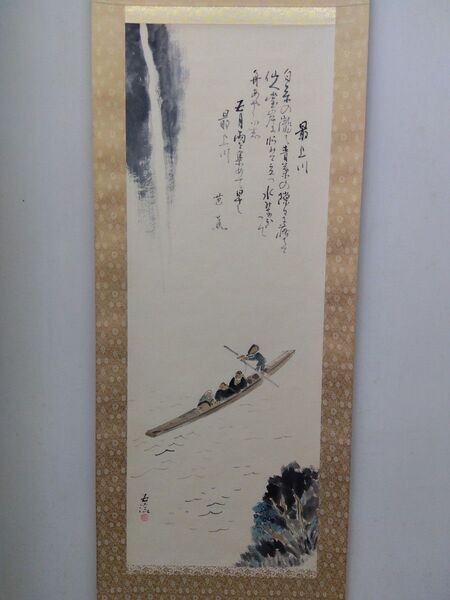 最上川
白糸の瀧は青葉の隙々に落て
仙人堂岸に臨みて立つ水みなぎつて
舟あやふし
五月雨を集めて早し
最上川
芭蕉